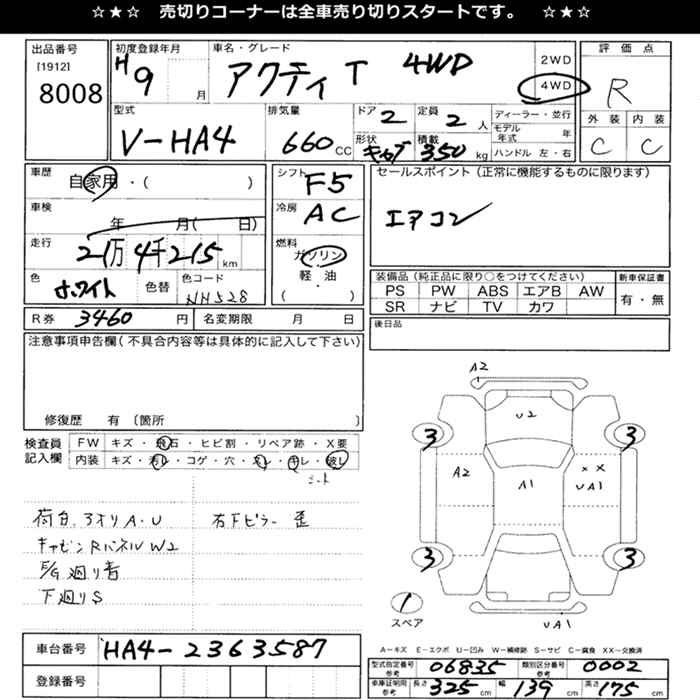 ☆★☆ 売切りコーナーは全車売り切りスタートです。 ☆★☆
出品番号
[1912]
8008
初度登録年月
H9 月
車名・グレード
アクティ T 4WD
2WD
4WD
評価点
R
型式
V-HA4
排気量
660 CC
ドア
2
定員
2 人
形状
キャブ
積載
350 kg
ディーラー・並行
モデル年式 年
ハンドル 左・右
外装 内装
C C
車歴
自家用・( )
シフト
F5
セールスポイント (正常に機能するものに限ります)
エアコン
車検
年 月( 日)
冷房
AC
走行
2万4千215 km
燃料
ガソリン
軽・油
( )
色
ホワイト
色替
色コード
NH528
装備品 (純正品に限り○をつけてください)
PS PW ABS エアB AW
SR ナビ TV カワ
新車保証書
有・無
R券 3460 円
名変期限 月 日
後日品
注意事項申告欄 (不具合内容等は具体的に記入して下さい)
修復歴 有 (箇所 )
検査員
記入欄
FW キズ・飛石・ヒビ割・リペア跡・X要
内装 キズ・汚レ・コゲ・穴・スレ・キレ・破レ
シート
荷台、3オリA・U 右下ピラー歪
キャビンRパネルW2
E/G廻り音
下廻りS
A2
U2
3 3
A2 A1 XX
UA1
3 3
1
スペア
UA1
A-キズ E-エクボ U-凹み W-補修跡 S-サビ C-腐食 XX-交換済
車台番号 HA4-2363587
登録番号
型式指定番号 参考 06835
類別区分番号 参考 0002
車庫証明用 参考 長さ 325 cm 幅 139 cm 高さ 175 cm